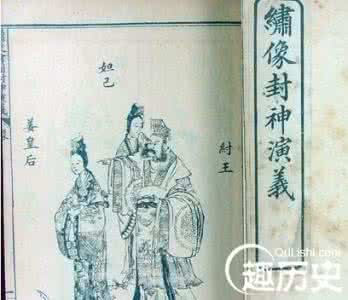 繡像封神演義
妲己
紂王
姜皇后
QuLishi.com
趣历史